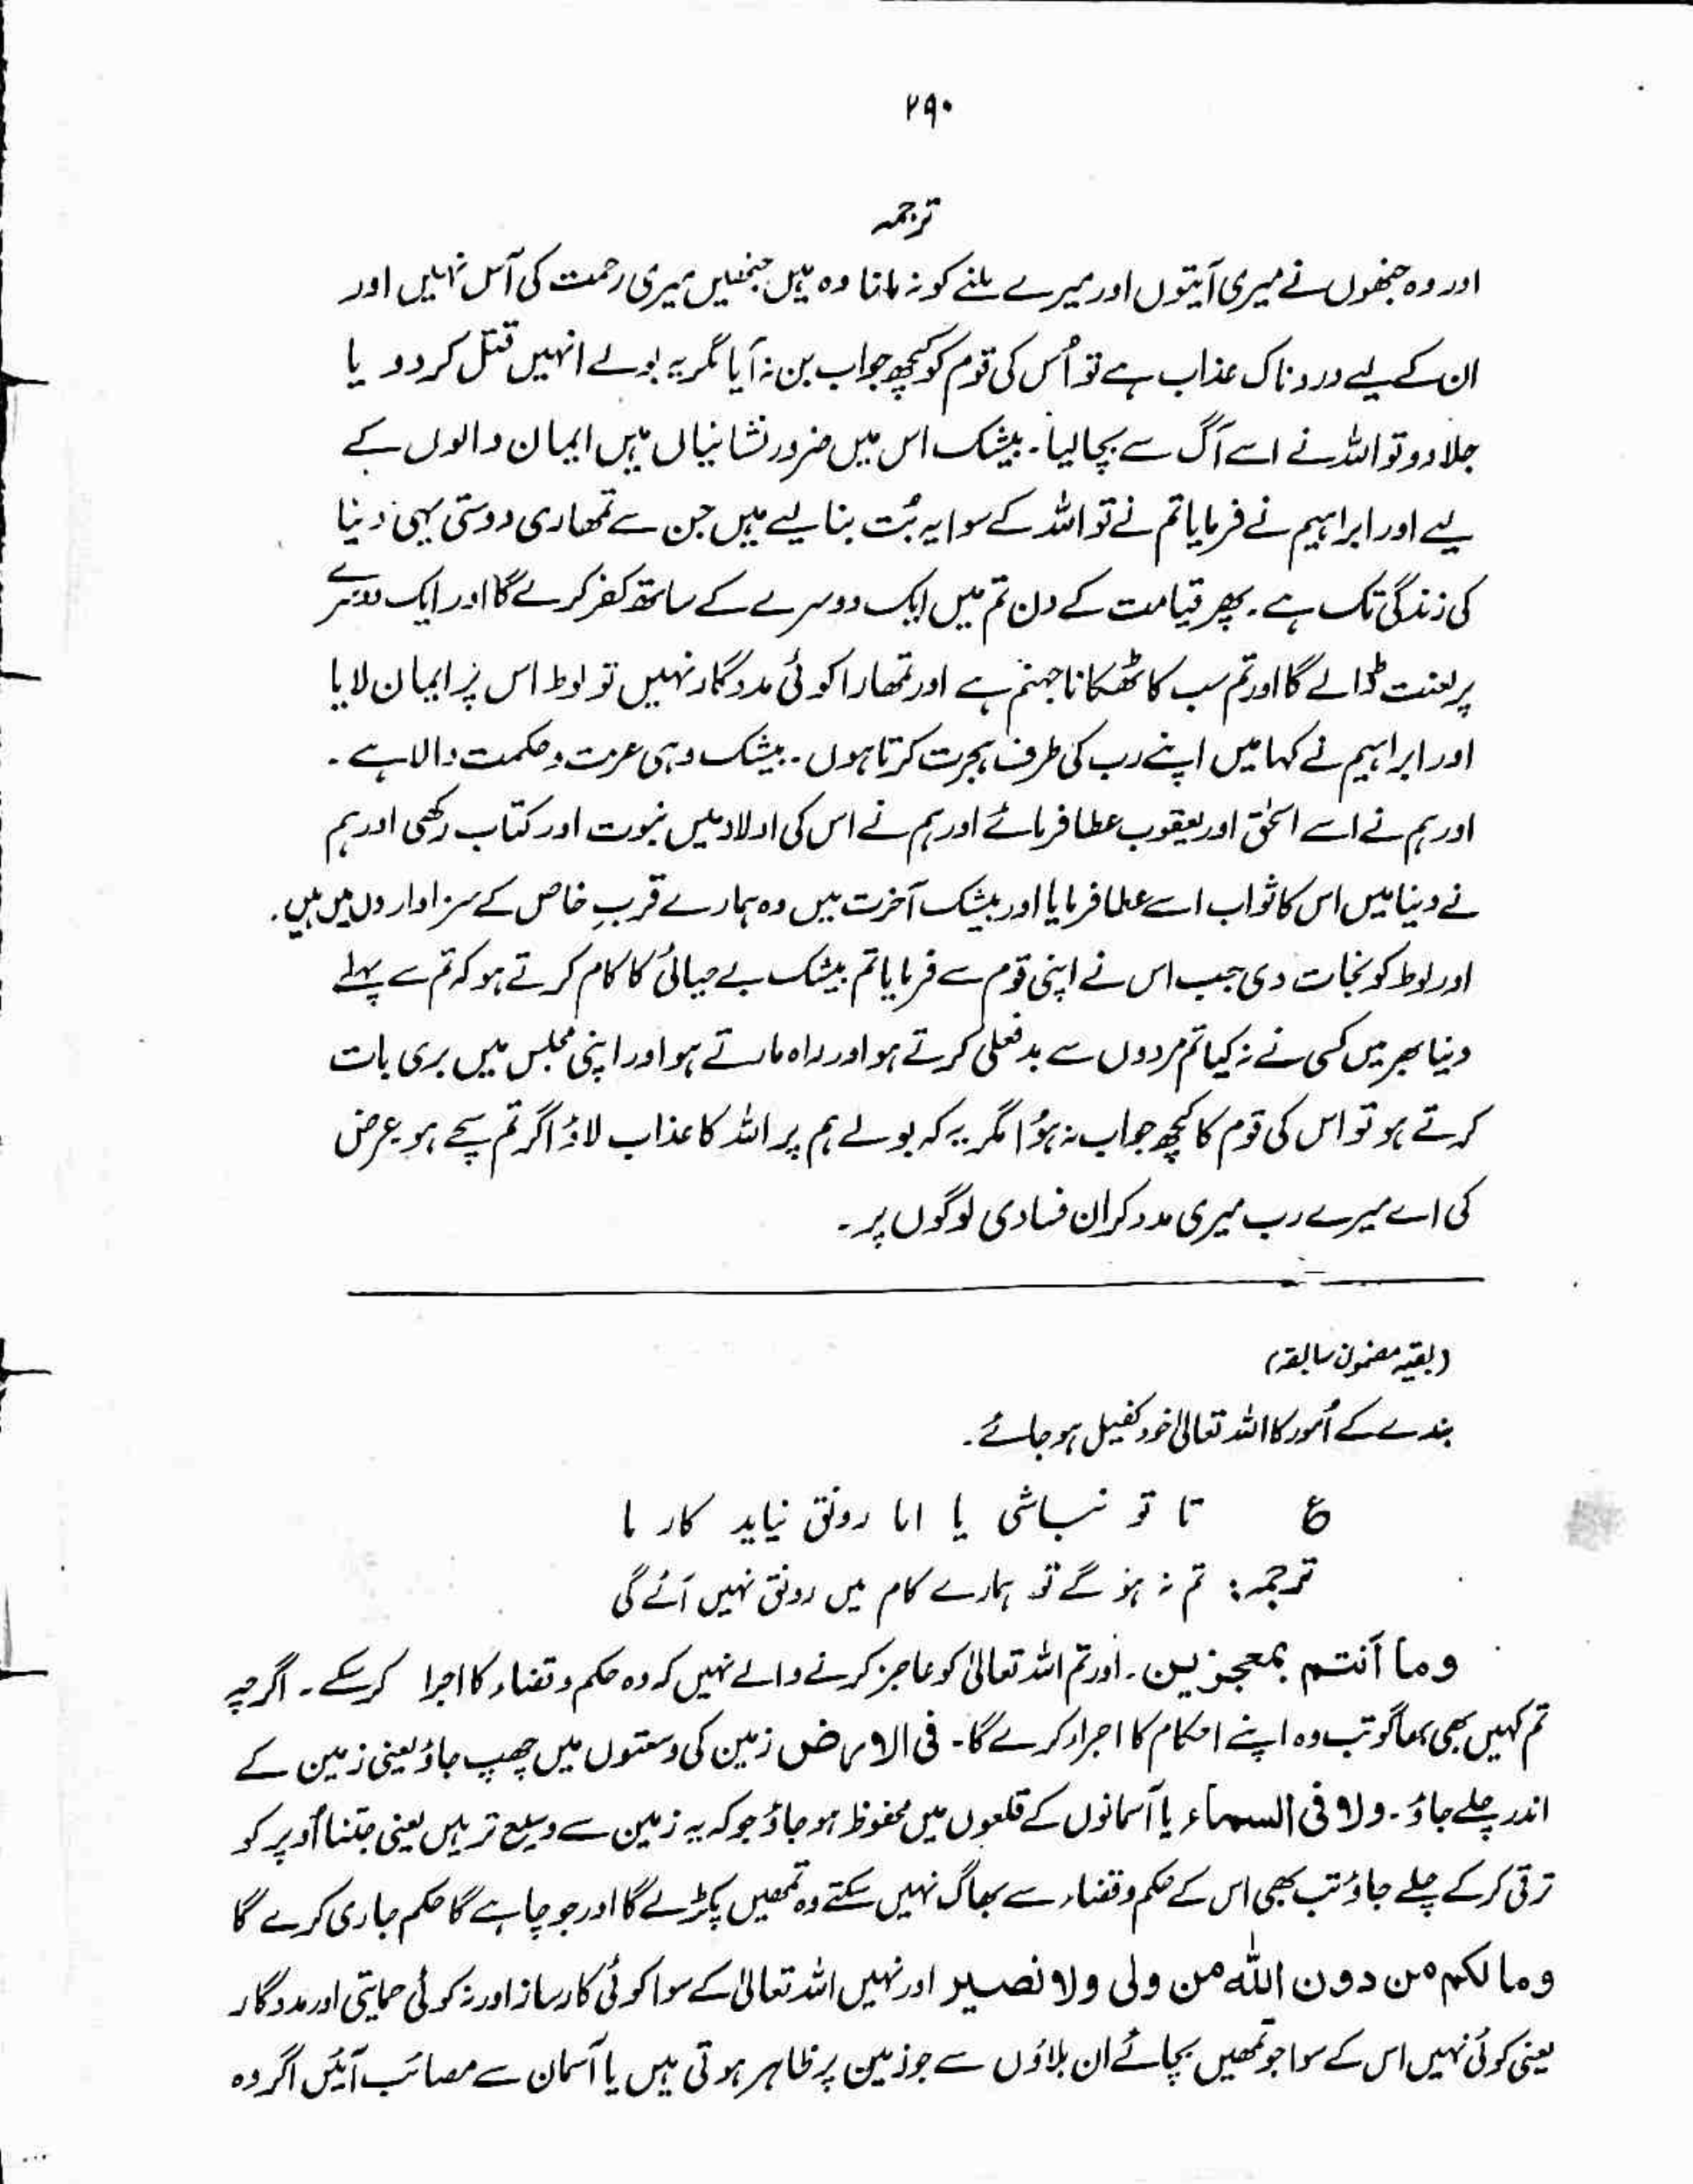 ۲۹۰
ترجمہ
اور وہ جنھوں نے میری آیتوں اور میرے ملنے کو نہ مانا وہ ہیں جنھیں میری رحمت کی آس نہیں اور
ان کے لیے دردناک عذاب ہے تو اُس کی قوم کو کچھ جواب بن نہ آیا مگر یہ بولے انہیں قتل کر دو یا
جلا دو تو اللہ نے اسے آگ سے بچا لیا۔ بیشک اس میں ضرور نشانیاں ہیں ایمان والوں کے
لیے اور ابراہیم نے فرمایا تم نے تو اللہ کے سوا یہ بُت بنا لیے ہیں جن سے تمھاری دوستی یہی دنیا
کی زندگی تک ہے۔ پھر قیامت کے دن تم میں ایک دوسرے کے ساتھ کفر کرے گا اور ایک دوسرے
پر لعنت ڈالے گا اور تم سب کا ٹھکانا جہنم ہے اور تمھارا کوئی مددگار نہیں تو لوط اس پر ایمان لایا
اور ابراہیم نے کہا میں اپنے رب کی طرف ہجرت کرتا ہوں۔ بیشک وہی عزت و حکمت والا ہے۔
اور ہم نے اسے اسحٰق اور یعقوب عطا فرمائے اور ہم نے اس کی اولاد میں نبوت اور کتاب رکھی اور ہم
نے دنیا میں اس کا ثواب اسے عطا فرمایا اور بیشک آخرت میں وہ ہمارے قربِ خاص کے سزاواروں میں ہیں۔
اور لوط کو نجات دی جب اس نے اپنی قوم سے فرمایا تم بیشک بے حیائی کا کام کرتے ہو کہ تم سے پہلے
دنیا بھر میں کسی نے نہ کیا تم مردوں سے بدفعلی کرتے ہو اور راہ مارتے ہو اور اپنی مجلس میں بری بات
کرتے ہو تو اس کی قوم کا کچھ جواب نہ ہوُا مگر یہ کہ بولے ہم پر اللہ کا عذاب لاؤ اگر تم سچے ہو عرض
کی اے میرے رب میری مدد کر ان فسادی لوگوں پر۔
(بقیہ مضمون سابقہ)
بندے کے اُمور کا اللہ تعالیٰ خود کفیل ہو جائے۔
ع تا تو نباشی یا اما رونق نیاید کار ما
ترجمہ: تم نہ ہو گے تو ہمارے کام میں رونق نہیں آئے گی
وما أنتم بمعجزین۔ اور تم اللہ تعالیٰ کو عاجز کرنے والے نہیں کہ وہ حکم و قضاء کا اجرا کر سکے۔ اگرچہ
تم کہیں بھی بھاگو تب وہ اپنے احکام کا اجراء کرے گا۔ فی الارض زمین کی وسعتوں میں چھپ جاؤ یعنی زمین کے
اندر چلے جاؤ۔ ولا فی السماء یا آسمانوں کے قلعوں میں محفوظ ہو جاؤ جو کہ یہ زمین سے وسیع تر ہیں یعنی جتنا اُوپر کو
ترقی کر کے چلے جاؤ تب بھی اس کے حکم و قضاء سے بھاگ نہیں سکتے وہ تمھیں پکڑے گا اور جو چاہے گا حکم جاری کرے گا
وما لکم من دون اللہ من ولی ولا نصیر اور نہیں اللہ تعالیٰ کے سوا کوئی کارساز اور نہ کوئی حمایتی اور مددگار
یعنی کوئی نہیں اس کے سوا جو تمھیں بچائے ان بلاؤں سے جو زمین پر ظاہر ہوتی ہیں یا آسمان سے مصائب آئیں اگر وہ